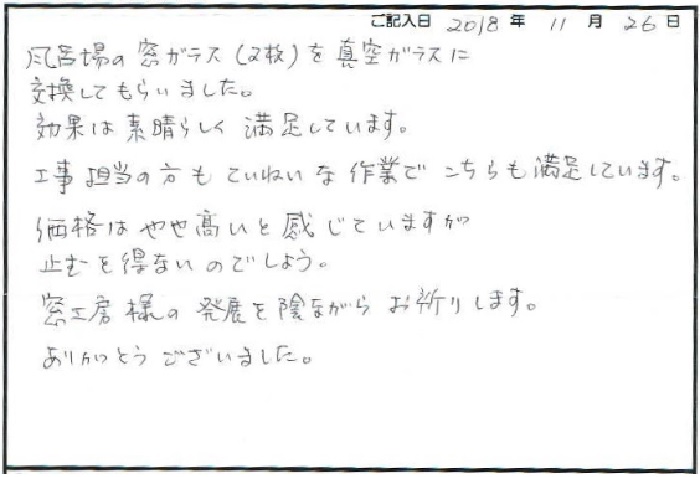 ご記入日 2018 年 11 月 26 日
風呂場の窓ガラス(2枚)を真空ガラスに
交換してもらいました。
効果は素晴らしく満足しています。
工事担当の方もていねいな作業でこちらも満足しています。
価格はやや高いと感じていますが
止むを得ないのでしょう。
窓工房様の発展を陰ながらお祈りします。
ありがとうございました。